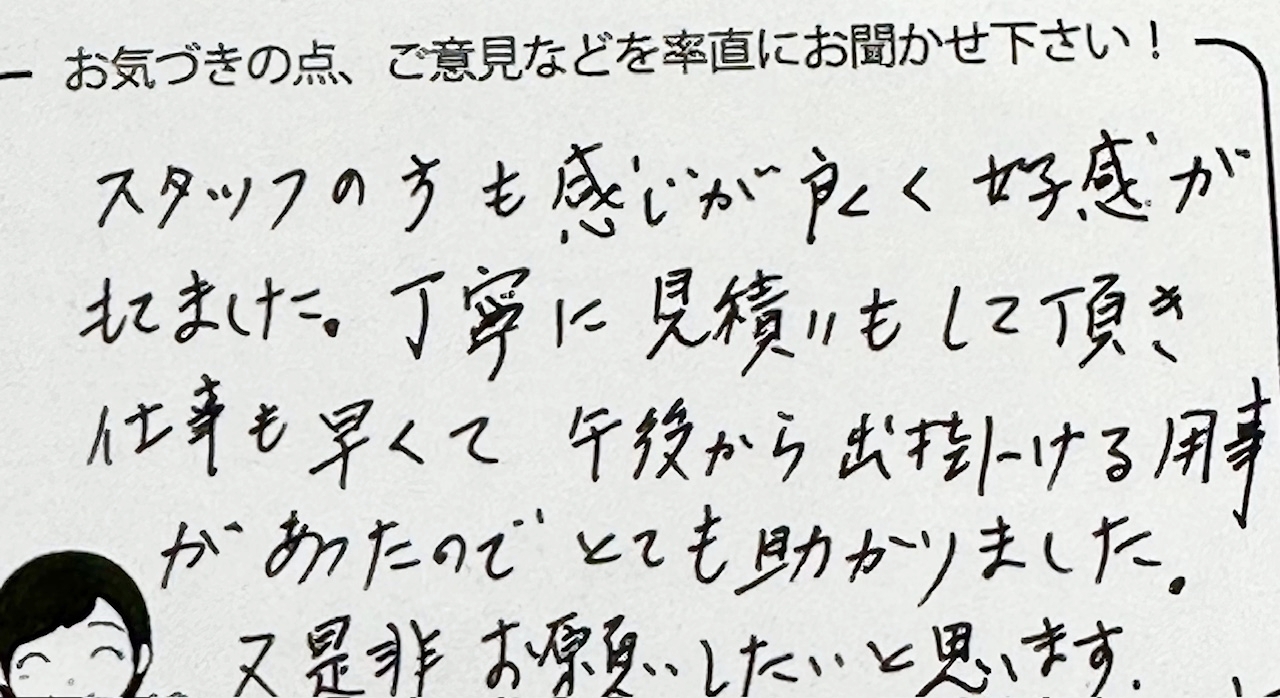 お気づきの点、ご意見などを率直にお聞かせ下さい！
スタッフの方も感じが良く好感が
もてました。丁寧に見積りもして頂き
仕事も早くて 午後から出掛ける用事
があったのでとても助かりました。
又是非お願いしたいと思います.